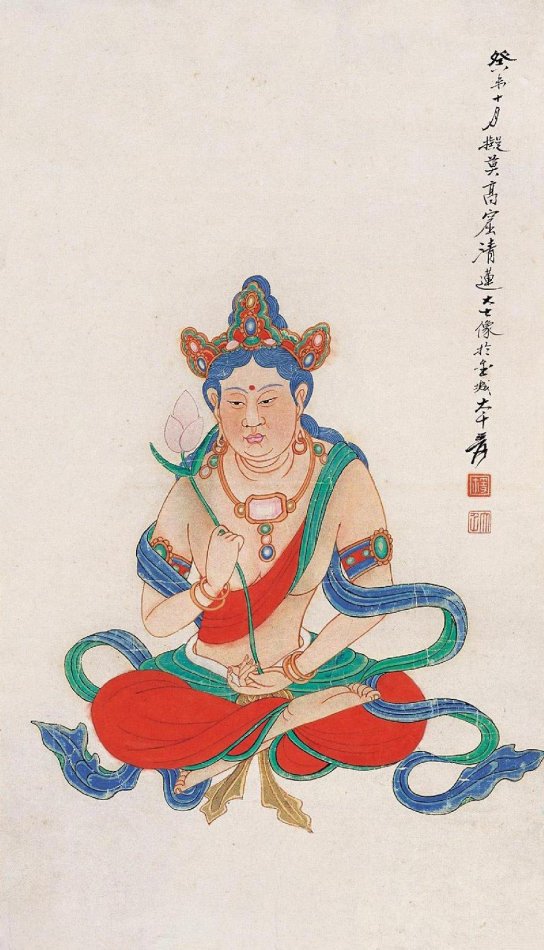 癸未十月擬莫高窟清蓮大士像於金城大千爰